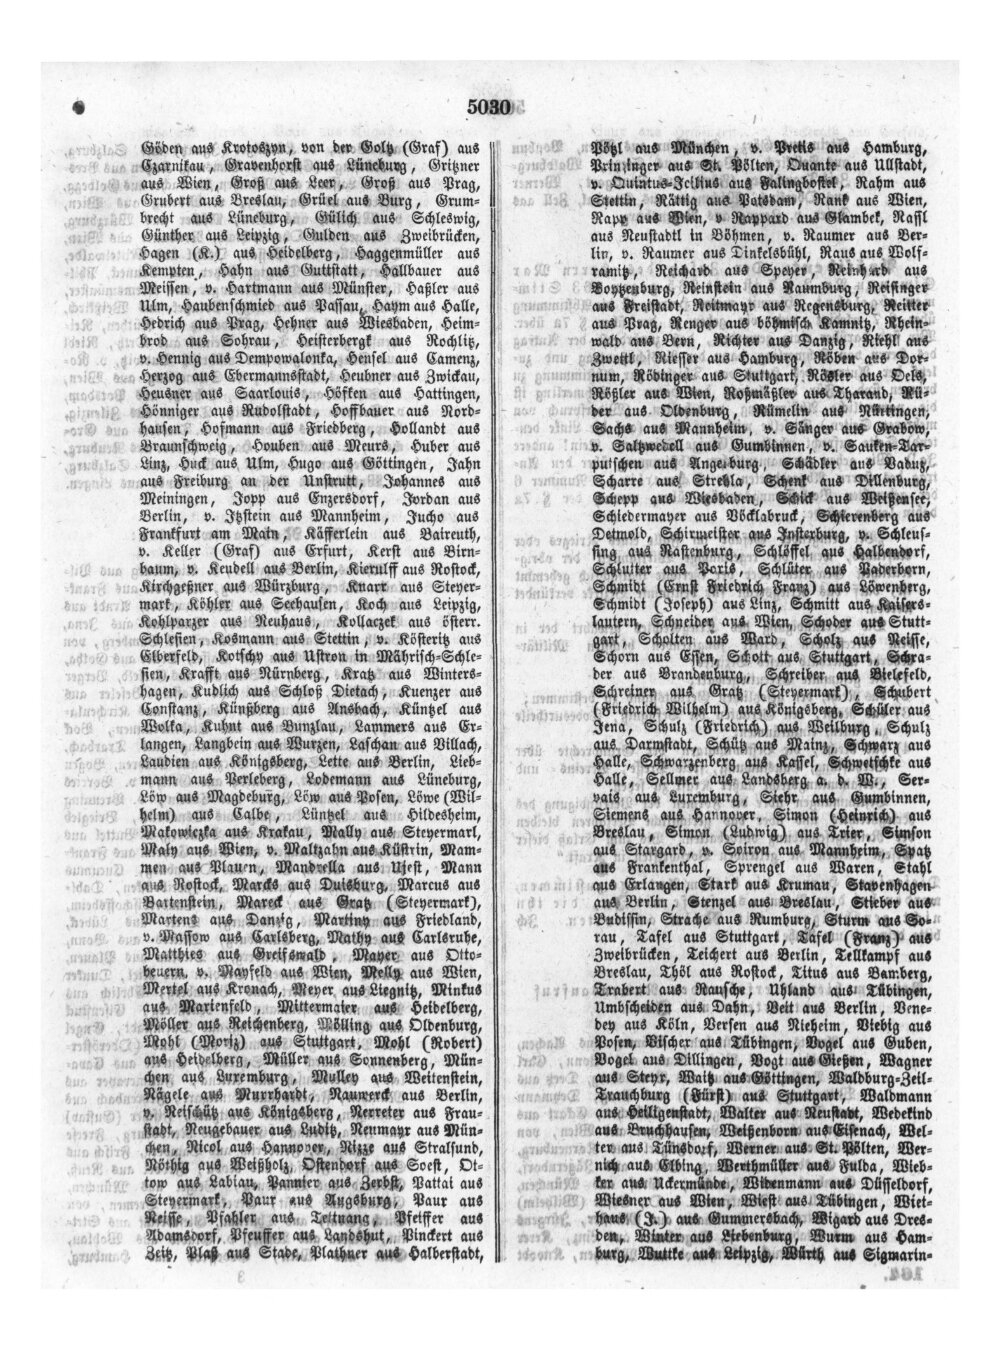 5030
Göden aus Krotoszyn, von der Goltz (Graf) aus
Czarnikau, Gravenhorst aus Lüneburg, Gritzner
aus Wien, Groß aus Leer, Groß aus Prag,
Grubert aus Breslau, Grüel aus Burg, Grum-
brecht aus Lüneburg, Gülich aus Schleswig,
Günther aus Leipzig, Gulden aus Zweibrücken,
Hagen (K.) aus Heidelberg, Haggenmüller aus
Kempten, Hahn aus Guttstatt, Hallbauer aus
Meissen, v. Hartmann aus Münster, Haßler aus
Ulm, Haubenschmied aus Passau, Haym aus Halle,
Hedrich aus Prag, Hehner aus Wiesbaden, Heim-
brod aus Sohrau, Heisterbergk aus Rochlitz,
v. Hennig aus Dempowalonka, Hensel aus Camenz,
Herzog aus Ebermannsstadt, Heubner aus Zwickau,
Heusner aus Saarlouis, Höfken aus Hattingen,
Hönniger aus Rudolstadt, Hoffbauer aus Nord-
hausen, Hofmann aus Friedberg, Hollandt aus
Braunschweig, Houben aus Meurs, Huber aus
Linz, Huck aus Ulm, Hugo aus Göttingen, Jahn
aus Freiburg an der Unstrutt, Johannes aus
Meiningen, Jopp aus Enzersdorf, Jordan aus
Berlin, v. Itzstein aus Mannheim, Jucho aus
Frankfurt am Main, Käfferlein aus Baireuth,
v. Keller (Graf) aus Erfurt, Kerst aus Birn-
baum, v. Keudell aus Berlin, Kierulff aus Rostock,
Kirchgeßner aus Würzburg, Knarr aus Steyer-
mark, Köhler aus Seehausen, Koch aus Leipzig,
Kohlparzer aus Neuhaus, Kollaczek aus österr.
Schlesien, Kosmann aus Stettin, v. Kösteritz aus
Elberfeld, Kotschy aus Ustron in Mährisch-Schle-
sien, Krafft aus Nürnberg, Kratz aus Winters-
hagen, Kudlich aus Schloß Dietach, Kuenzer aus
Constanz, Künßberg aus Ansbach, Küntzel aus
Wolka, Kuhnt aus Bunzlau, Lammers aus Er-
langen, Langbein aus Wurzen, Laschan aus Villach,
Laudien aus Königsberg, Lette aus Berlin, Lieb-
mann aus Perleberg, Lodemann aus Lüneburg,
Löw aus Magdeburg, Löw aus Posen, Löwe (Wil-
helm) aus Calbe, Lüntzel aus Hildesheim,
Makowiczka aus Krakau, Mally aus Steyermark,
Maly aus Wien, v. Maltzahn aus Küstrin, Mam-
men aus Plauen, Mandrella aus Ujest, Mann
aus Rostock, Marcks aus Duisburg, Marcus aus
Bartenstein, Mareck aus Gratz (Steyermark),
Martens aus Danzig, Martiny aus Friedland,
v. Massow aus Carlsberg, Mathy aus Carlsruhe,
Matthies aus Greifswald, Mayer aus Otto-
beuern, v. Mayfeld aus Wien, Melly aus Wien,
Mertel aus Kronach, Meyer aus Liegnitz, Minkus
aus Marienfeld, Mittermaier aus Heidelberg,
Möller aus Reichenberg, Mölling aus Oldenburg,
Mohl (Moriz) aus Stuttgart, Mohl (Robert)
aus Heidelberg, Müller aus Sonnenberg, Mün-
chen aus Luxemburg, Mulley aus Weitenstein,
Nägele aus Murrhardt, Nauwerck aus Berlin,
v. Neischütz aus Königsberg, Nerreter aus Frau-
stadt, Neugebauer aus Luditz, Neumayr aus Mün-
chen, Nicol aus Hannover, Nizze aus Stralsund,
Nöthig aus Weißholz, Ostendorf aus Soest, Ot-
tow aus Labiau, Pannier aus Zerbst, Pattai aus
Steyermark, Paur aus Augsburg, Paur aus
Neisse, Pfahler aus Tettnang, Pfeiffer aus
Adamsdorf, Pfeuffer aus Landshut, Pinckert aus
Zeitz, Plaß aus Stade, Plathner aus Halberstadt,
Pötzl aus München, v. Pretis aus Hamburg,
Prinzinger aus St. Pölten, Quante aus Ullstadt,
v. Quintus-Icilius aus Falingbostel, Rahm aus
Stettin, Rättig aus Potsdam, Rank aus Wien,
Rapp aus Wien, v Rappard aus Glambek, Raffl
aus Neustadtl in Böhmen, v. Raumer aus Ber-
lin, v. Raumer aus Dinkelsbühl, Raus aus Wolf-
ramitz, Reichard aus Speyer, Reinhard aus
Boytzenburg, Reinstein aus Naumburg, Reisinger
aus Freistadt, Reitmayr aus Regensburg, Reitter
aus Prag, Renger aus böhmisch Kamnitz, Rhein-
wald aus Bern, Richter aus Danzig, Riehl aus
Zwettl, Riesser aus Hamburg, Röben aus Dor-
num, Rödinger aus Stuttgart, Rösler aus Oels,
Rößler aus Wien, Roßmäßler aus Tharand, Rü-
der aus Oldenburg, Rümelin aus Nürtingen,
Sachs aus Mannheim, v. Sänger aus Grabow,
v. Saltzwedell aus Gumbinnen, v. Sauken-Tar-
putschen aus Angerburg, Schädler aus Vaduz,
Scharre aus Strehla, Schenk aus Dillenburg,
Schepp aus Wiesbaden, Schick aus Weißensee,
Schiedermayer aus Vöcklabruck, Schierenberg aus
Detmold, Schirmeister aus Insterburg, v. Schleus-
sing aus Rastenburg, Schlöffel aus Halbendorf,
Schluiter aus Paris, Schlüter aus Paderborn,
Schmidt (Ernst Friedrich Franz) aus Löwenberg,
Schmidt (Joseph) aus Linz, Schmitt aus Kaisers-
lautern, Schneider aus Wien, Schoder aus Stutt-
gart, Scholten aus Ward, Scholz aus Neisse,
Schorn aus Essen, Schott aus Stuttgart, Schra-
der aus Brandenburg, Schreiber aus Bielefeld,
Schreiner aus Gratz (Steyermark), Schubert
(Friedrich Wilhelm) aus Königsberg, Schüler aus
Jena, Schulz (Friedrich) aus Weilburg, Schulz
aus Darmstadt, Schütz aus Mainz, Schwarz aus
Halle, Schwarzenberg aus Kassel, Schwetschke aus
Halle, Sellmer aus Landsberg a. d. W., Ser-
vais aus Luxemburg, Siehr aus Gumbinnen,
Siemens aus Hannover, Simon (Heinrich) aus
Breslau, Simon (Ludwig) aus Trier, Simson
aus Stargard, v. Soiron aus Mannheim, Spatz
aus Frankenthal, Sprengel aus Waren, Stahl
aus Erlangen, Stark aus Krumau, Stavenhagen
aus Berlin, Stenzel aus Breslau, Stieber aus
Budissin, Strache aus Rumburg, Sturm aus So-
rau, Tafel aus Stuttgart, Tafel (Franz) aus
Zweibrücken, Teichert aus Berlin, Tellkampf aus
Breslau, Thöl aus Rostock, Titus aus Bamberg,
Trabert aus Rausche, Uhland aus Tübingen,
Umbscheiden aus Dahn, Veit aus Berlin, Vene-
dey aus Köln, Versen aus Nieheim, Viebig aus
Posen, Vischer aus Tübingen, Vogel aus Guben,
Vogel aus Dillingen, Vogt aus Gießen, Wagner
aus Steyr, Waitz aus Göttingen, Waldburg-Zeil-
Trauchburg (Fürst) aus Stuttgart, Waldmann
aus Heiligenstadt, Walter aus Neustadt, Wedekind
aus Bruchhausen, Weißenborn aus Eisenach, Wel-
ter aus Tünsdorf, Werner aus St. Pölten, Wer-
nich aus Elbing, Werthmüller aus Fulda, Wieb-
ker aus Uckermünde, Widenmann aus Düsseldorf,
Wiesner aus Wien, Wiest aus Tübingen, Wiet-
haus (J.) aus Gummersbach, Wigard aus Dres-
den, Winter aus Liebenburg, Wurm aus Ham-
burg, Wuttke aus Leipzig, Würth aus Sigmarin-